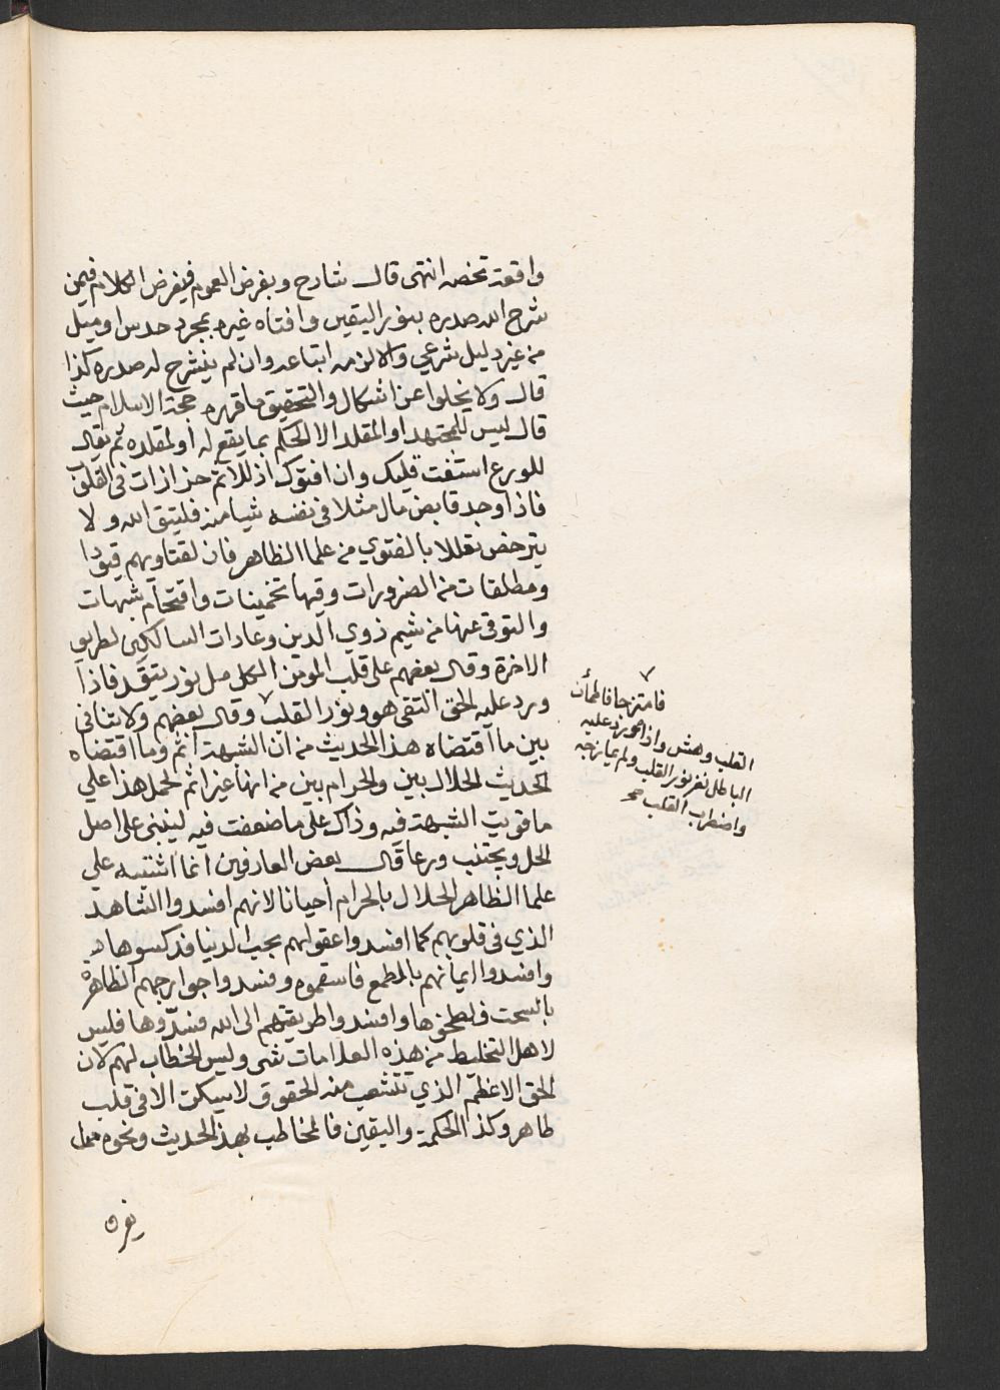 واقعة تخصه انتهى قال شارح وبفرض العموم فيفرض الكلام فيمن
شرح الله صدره بنور اليقين وافتاه غيره بمجرد حدس او ميل
من غير دليل شرعي والا لزمه اتباعه وان لم ينشرح له صدره كذا
قال ولا يخلوا عن اشكال والتحقيق ما قرره حجة الاسلام حيث
قال ليس للمجتهد او المقلد الا الحكم بما يقع له او لمقلده ثم يقال
للورع استفت قلبك وان افتوك اذ للاثم حزازات في القلوب
فاذا وجد قابض مال مثلا في نفسه شيا منه فليتق الله ولا
يترخص تعللا بالفتوي من علما الظاهر فان لفتاويهم قيودا
ومطلقات من الضرورات وفيها تخمينات واقتحام شبهات
والتوقي عنها من شيم ذوي الدين وعادات السالكين لطريق
الاخرة وقال بعضهم على قلب المومن الكامل نور يتقد فاذا
ورد عليه الحق التقى هو ونور القلب ٧ وقال بعضهم ولا ينافي
بين ما اقتضاه هذا الحديث من ان الشبهة اثم وما اقتضاه
الحديث الحلال بين والحرام بين من انها غير اثم لحمل هذا علي
ما قويت الشبهة فيه وذاك على ما ضعفت فيه ليبنى على اصل
الحل ويجتنب ورعا قال بعض العارفين انما اشتبه علي
علما الظاهر الحلال بالحرام احيانا لانهم افسدوا الشاهد
الذي في قلوبهم كما افسدوا عقولهم بحب الدنيا فدكسوها
وافسدوا ايمانهم بالطمع فاسقموه وفسدوا جوارحهم الظاهرة
بالسحت فلطخوها وافسدوا طريقتهم الى الله فسدّوها فليس
لاهل التخليط من هذه العلامات شي وليس الخطاب لهم لان
الحق الاعظم الذي تتشعب منه الحقوق لا يسكن الا في قلب
طاهر وكذا الحكمة واليقين فالمخاطب بهذا الحديث ونحوه
٧
فامتزجا فاطمأن
القلب وهش واذا ورد عليه
الباطل نفر نور القلب ولم يمازجه
واضطرب القلب صح